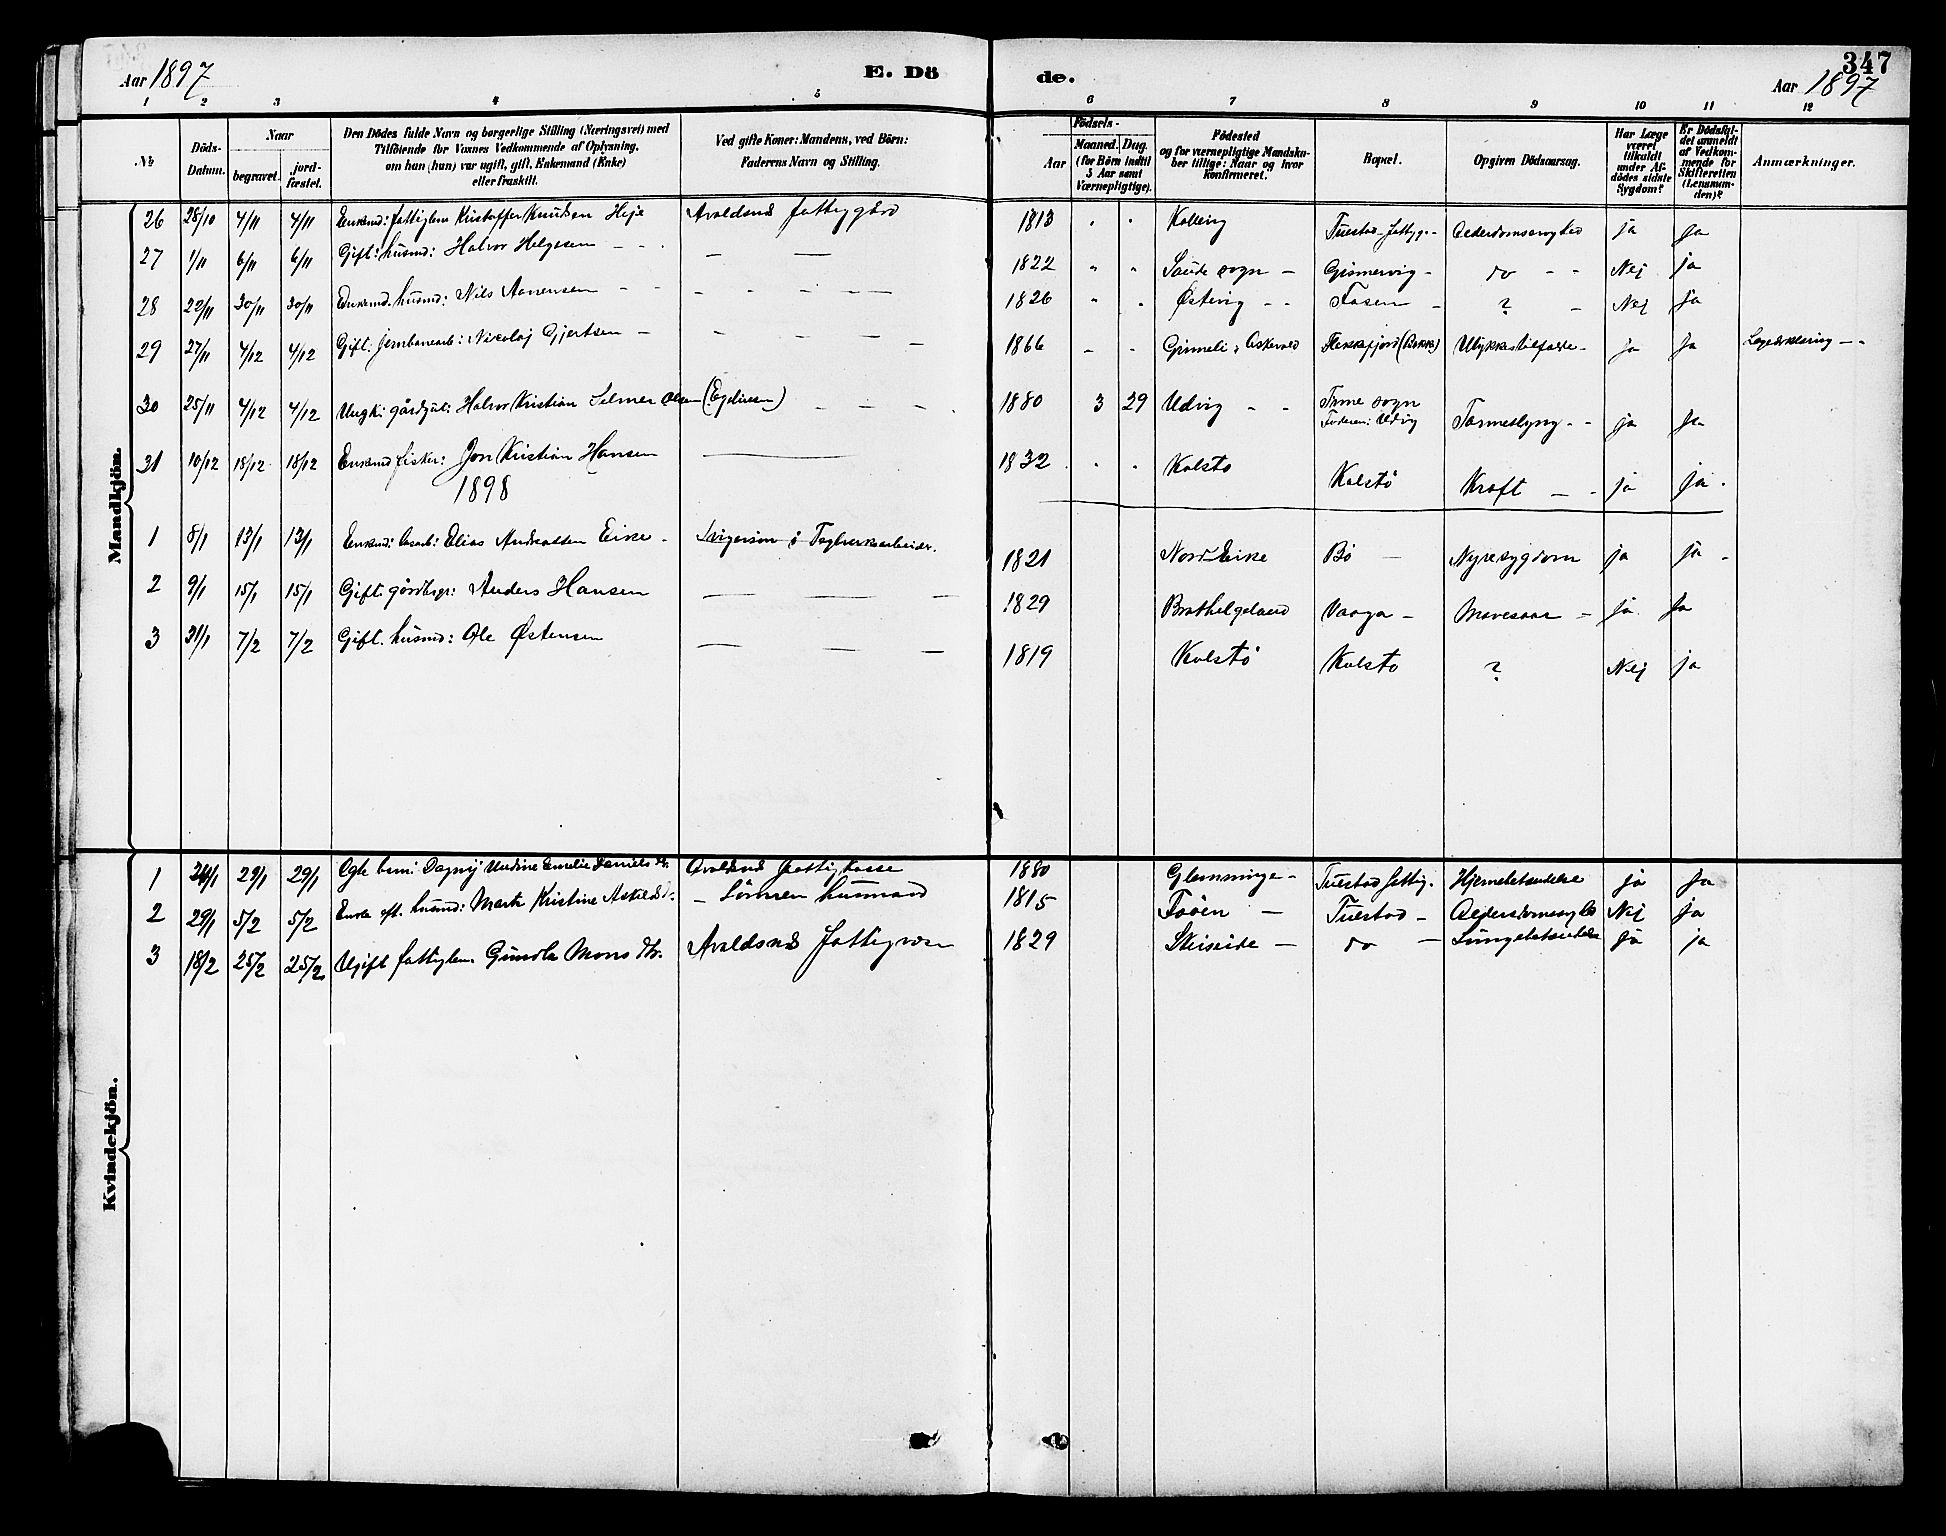 347
Aar 1897 E. Dö de. Aar 1897
1 2 3 4 5 6 7 8 9 10 11 12
№
Döds-Datum.
Naar
begravet.
jord-fæstet.
Den Dödes fulde Navn og borgerlige Stilling (Næringsvei) med
Tilföiende for Voxnes Vedkommende af Oplysning,
om han (hun) var ugift, gift, Enkemand (Enke)
eller fraskilt.
Ved gifte Koner: Mandens, ved Börn:
Faderens Navn og Stilling.
Födsels-
Aar
Maaned. Dag.
(for Börn indtil
5 Aar samt
Værnepligtige).
Födested
og for værnepligtige Mandska-
ber tillige: Naar og hvor
konfirmeret.
Bopæl.
Opgiven Dödsaarsag.
Har Læge
været
tilkaldt
under Af-
dödes sidste
Sygdom?
Er Dödsfal-
det anmeldt
af Vedkom-
mende for
Skifteretten
(Lensman-
den)?
Anmærkninger.
Mandkjön.
26 28/10 4/11 4/11 Enkemd: fattiglem Kristoffer Knudsen Heje Avaldsnes fattiggård 1813 " " Kolbeng Tuestad fattigg. - Alderdomssvaghed ja ja
27 1/11 6/11 6/11 Gift: husmd: Halvor Helgesen - - - — — 1822 " " Saude sogn - Gismervig - do - - Nej ja
28 22/11 30/11 30/11 Enkemd. husmd: Nils Aanensen - - - - - — 1826 " " Østevig - - Fosen - ? - Nej ja
29 27/11 4/12 4/12 Gift: jernbanearb: Nicolaj Gjertsen - - - — - 1866 - - Grimeli i Askevold Flekkefjord (Bakke) Ulykkestilfælde - ja ja Lægeerklæring - -
30 25/11 4/12 4/12 Ungk: gårdgut: Halvor Kristian Selmer Olsen (Egelivsen) - - - - 1880 3 29 Udvig - - Time sogn
Faderen: Udvig Tarmeslyng - - ja ja
31 10/12 18/12 18/12 Enkemd fisker: Jon Kristian Hansen — 1832 " " Kolstø Kolstø Kræft - - ja ja.
1898
1 8/1 13/1 13/1 Enkemd: løsarb: Elias Andreassen Eike - Svigersøn i Teglverksarbeider. 1821 Nord Eike Bø - Nyresygdom ja ja -
2 9/1 15/1 15/1 Gift: gårdbrgr: Anders Hansen — — - 1829 Brathelgeland Vaaga - Mavesaar - ja ja
3 31/1 7/2 7/2 Gift. husmd: Ole Østensen — — - 1819 Kolstø Kolstø ? Nej ja
Kvindekjön.
1 24/1 29/1 29/1 Ægte barn: Dagny Undine Emelie Daniels dtr. Avaldsnes fattigkasse 1880 Glemminge - Tuestad fattig. Hjernebetændelse ja ja
2 29/1 5/2 5/2 Enke eft. husmd: Marta Kristine Askilds d: - Sörnen husmand 1815 Foöen - Tuestad - Alderdomssvaghed Nej ja
3 18/2 25/2 25/2 Ugift fattiglem Gundla Mons dtr. Avaldsnes fattigvæsen 1829 Skiseide - do - Lungebetændelse ja ja